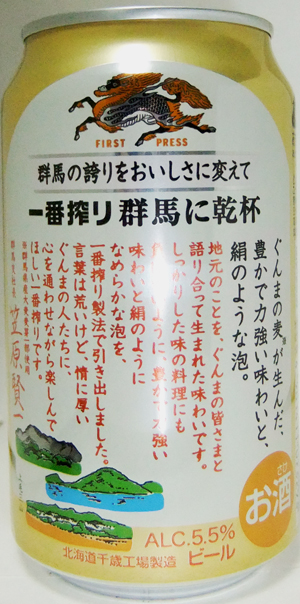 FIRST PRESS
群馬の誇りをおいしさに変えて
一番搾り 群馬に乾杯
ぐんまの麦※が生んだ、
豊かで力強い味わいと、
絹のような泡。
地元のことを、ぐんまの皆さまと
語り合って生まれた味わいです。
しっかりした味の料理にも
豊かで力強い
味わいと絹のように
なめらかな泡を、
一番搾り製法で引き出しました。
言葉は荒いけど、情に厚い
ぐんまの人たちに、
心を通わせながら楽しんで
ほしい一番搾りです。
群馬支社長
笠原賢一
お酒
さけ
ALC.5.5%
北海道千歳工場製造 ビール